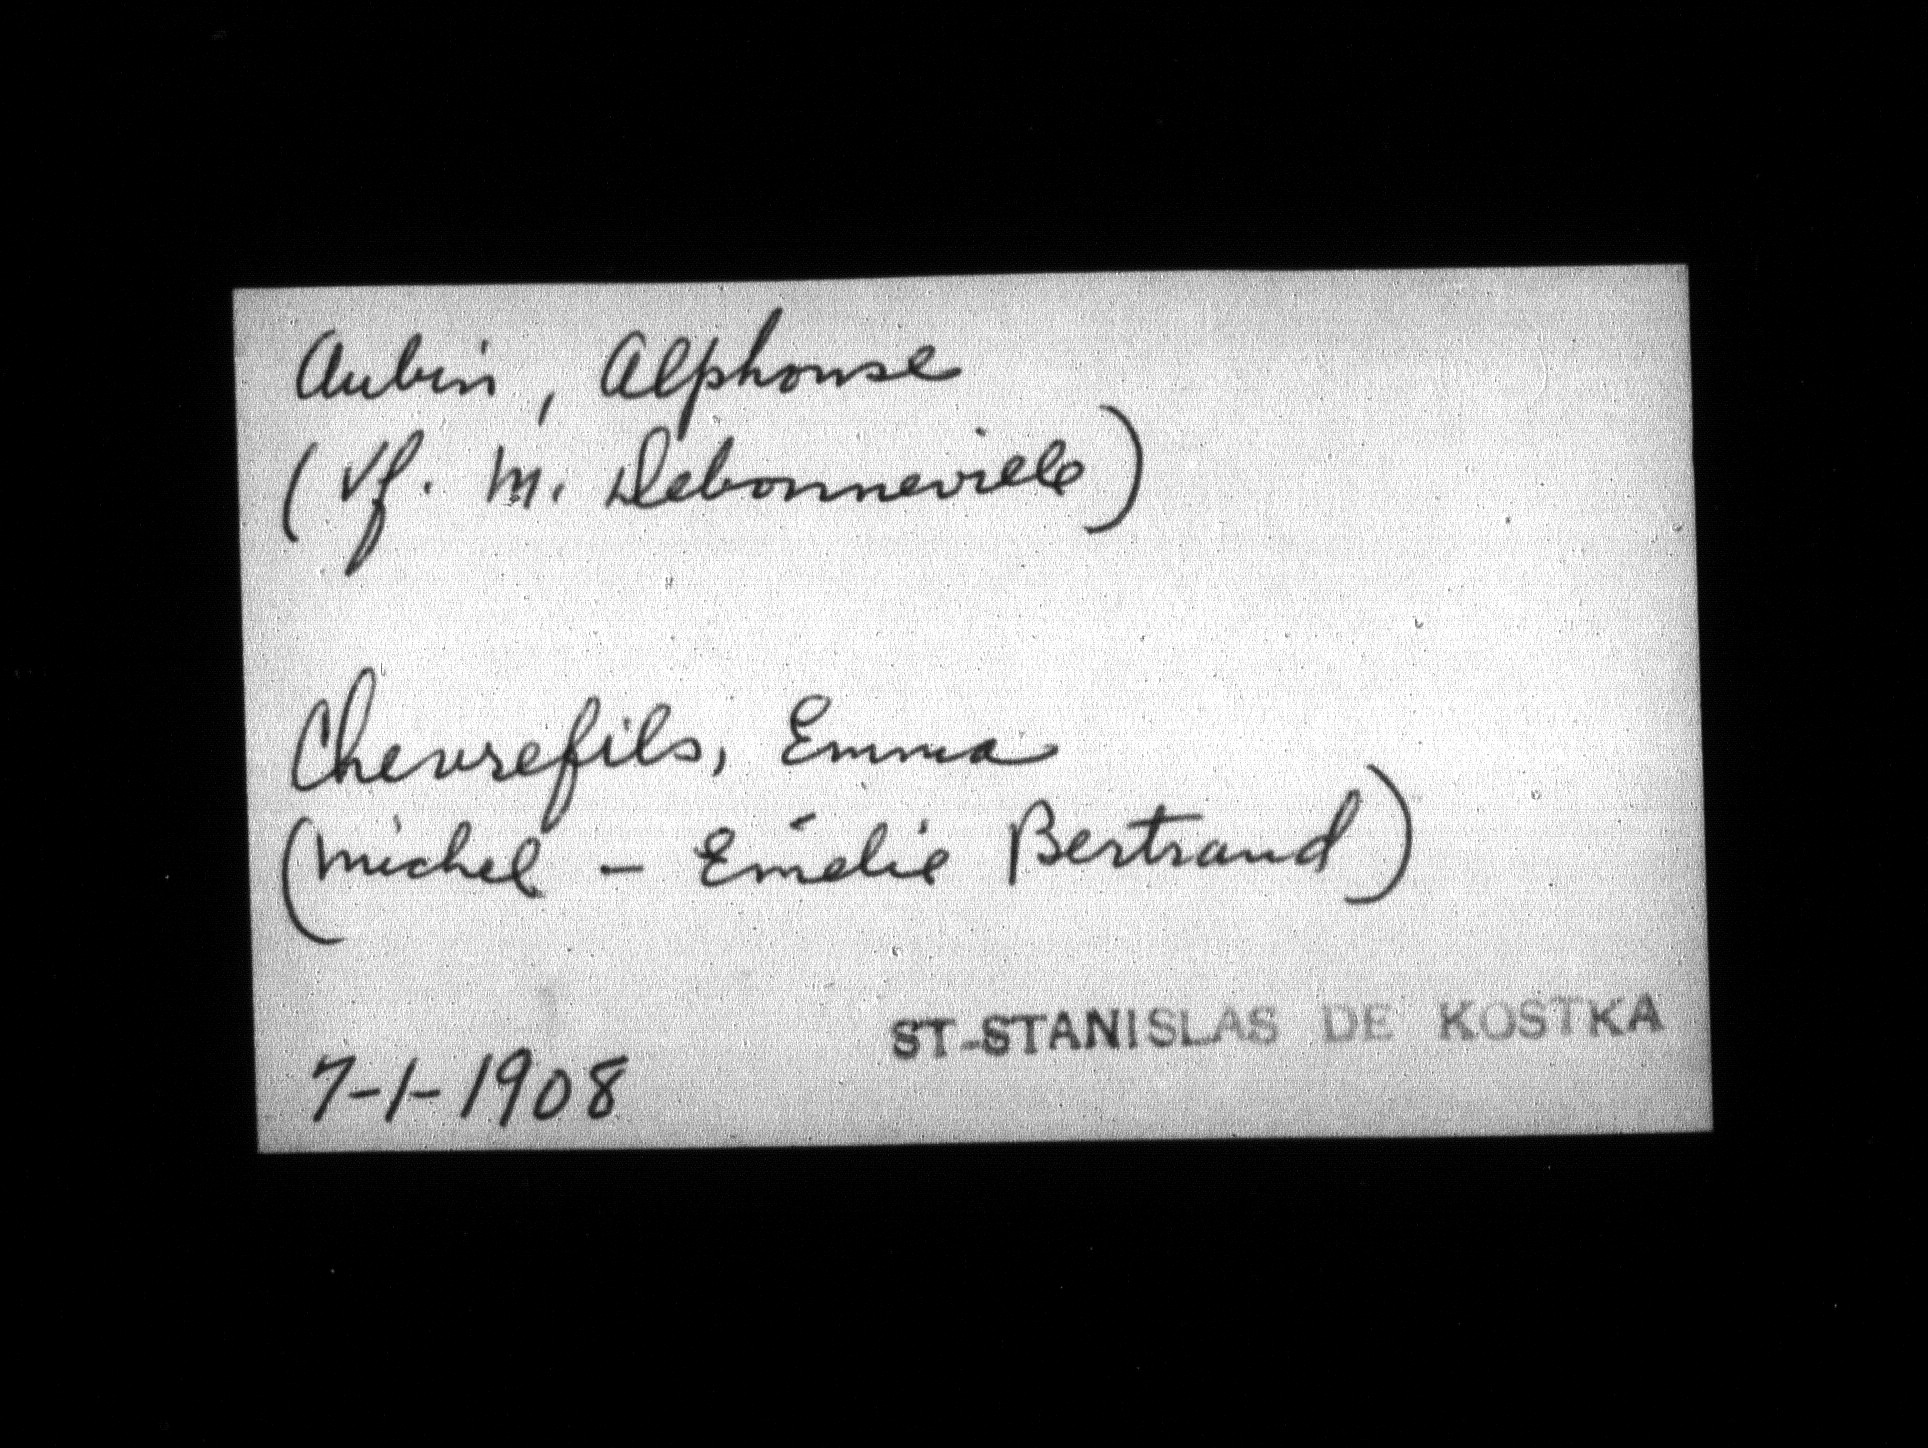 Aubin, Alphonse
(Vf. M. Debonneville)
Chevrefils, Emma
(Michel - Emélie Bertrand)
ST-STANISLAS DE KOSTKA
7-1-1908